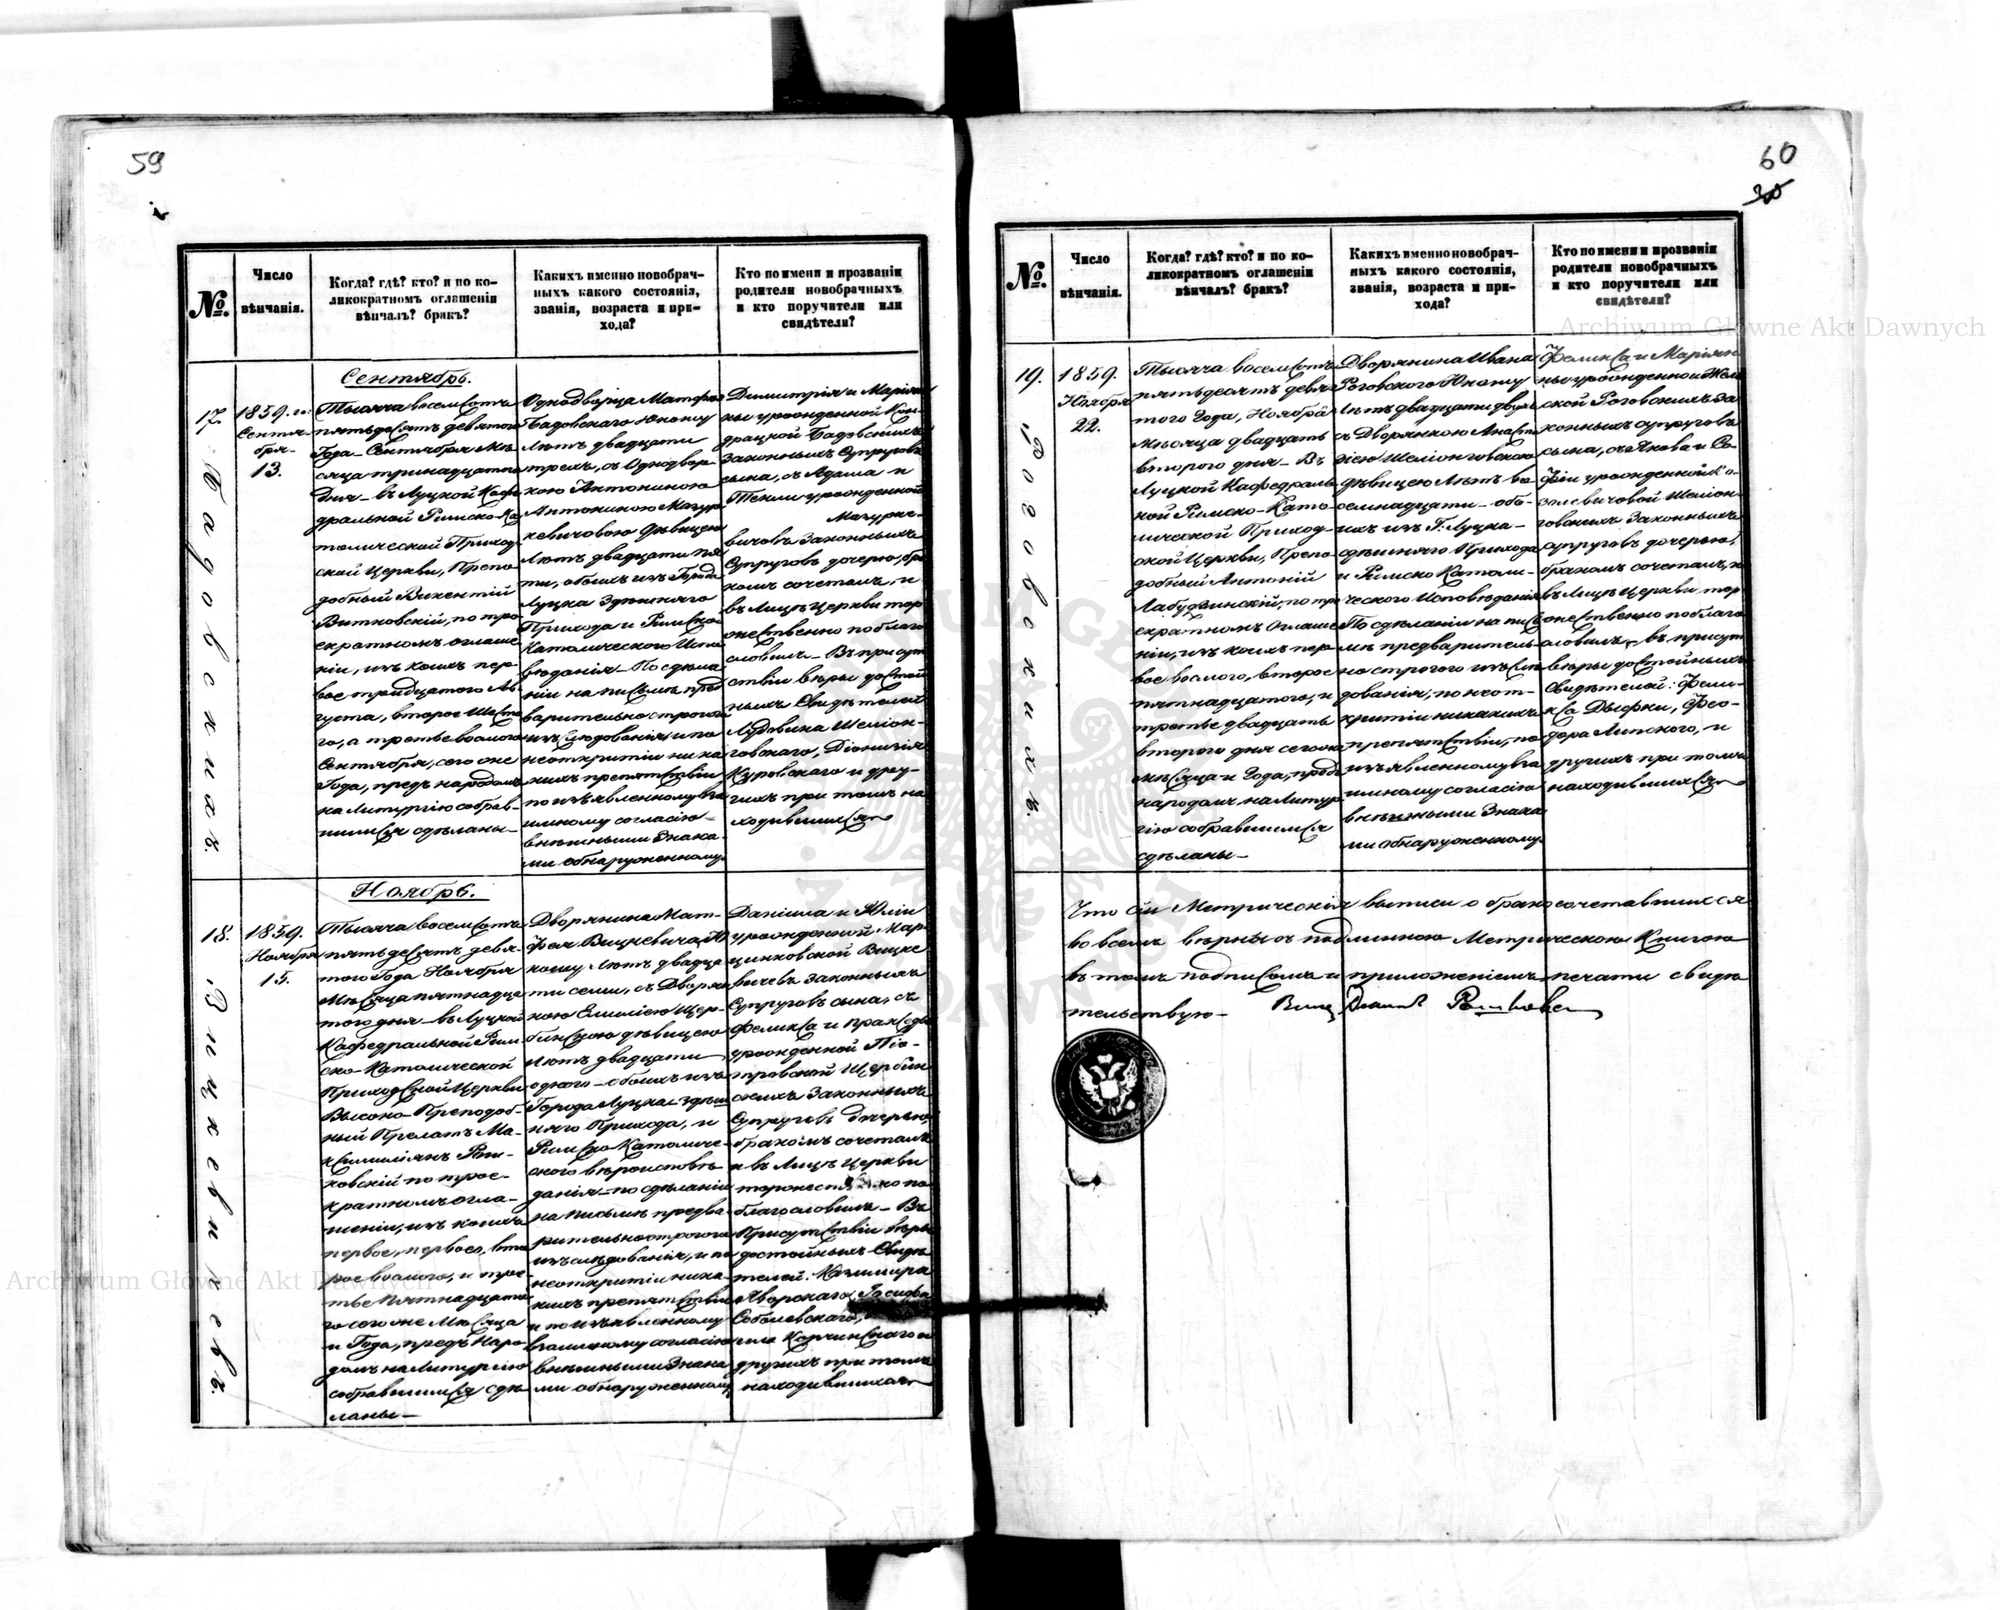 59
№.
Число
вѣнчанія.
Когда? гдѣ? кто? и по ко-
ликократномъ оглашеніи
вѣнчалъ? бракъ?
Какихъ именно новобрач-
ныхъ какого состоянія,
званія, возраста и при-
хода?
Кто по имени и прозванію
родители новобрачныхъ
и кто поручители или
свидѣтели?
17.
Бадовскихъ.
1859. го
Сентя-
бря-
13.
Сентябрь.
Тысяча восемьсотъ
пятьдесятъ девятого
Года - Сентября Мѣ-
сяца тринадцатого
дня - въ Луцкой Кафе
дральной Римско-Ка
толической Приход-
ской Церкви, Препо-
добный Викентій
Витковскій, по тро
екратномъ оглаше
ніи, изъ коихъ пер-
вое тридцатого Ав-
густа, второе шесто
го, а третье восмого
Сентября, сего же
Года, предъ народомъ
на Литургію собрав-
шимися сдѣланы-
Однодворца Матфея
Бадовского Юношу
Лѣтъ двадцати
трехъ, съ Однодвор-
кою Антониною
Антониною Мазур
кевичовою дѣвицею
Лѣтъ двадцати пя
ти, обоихъ изъ Города
Луцка здѣшняго
Прихода и Римско
Католического Испо
вѣданія - По сдѣла
ніи на письмѣ пред
варительно строгого
изслѣдованія и по
неоткритіи ни ка
кихъ препятствій
по изъявленному вза
имному согласію
внѣшными знака
ми обнаруженному.
Димитрія и Маріян
ны урожденной Кон-
драцкой Бадовскихъ
законныхъ Супруговъ
сына, съ Адама и
Текли урожденной
Мазурке-
вичовъ законныхъ
Супруговъ дочерью, бра
комъ сочеталъ, и
въ Лицѣ Церкви тор
жественно поблаго
словилъ - Въ присут
ствіи вѣры достой
ныхъ Свидѣтелей
Людвика Шеліон-
говского, Діонизія
Куровского и дру-
гихъ при томъ на
ходившихся
18.
Вицкевичевъ.
1859.
Ноября
15.
Ноябрь.
Тысяча восемьсотъ
пятьдесятъ девя-
того Года Ноября
Мѣсяца пятнадца
того дня - въ Луцкой
Кафедральной Рим
ско-Католической
Приходской Церкви
Высоко-Преподоб-
ный Прелатъ Ма-
ксимиліянъ Рош-
ковскій по трое-
кратномъ огла-
шеніи, изъ коихъ
первое, первого, вто
рое восмого, и тре-
тье пятнадцато
го сего же Мѣсяца
и Года, предъ Наро-
домъ на Литургію
собравшимися сдѣ-
ланы-
Дворянина Мат-
фея Вицкевича Ю
ношу Лѣтъ двадца
ти семи, съ Дворян
кою Емиліею Щер-
бинскою дѣвицею
Лѣтъ двадцати
одного - обоихъ изъ
Города Луцка здѣш
няго Прихода, и
Римско Католиче-
ского вѣроисповѣ
данія - по сдѣланіи
на письмѣ предва
рительно строгого
изслѣдованія, и по
неоткритіи ника-
кихъ препятствій
и по изъявленному
взаимному согласію
внѣшными знака
ми обнаруженному
Даніила и Юліи
урожденной Мар-
цинковской Вицке
вичевъ законныхъ
Супруговъ сына, съ
Феликса и Праксѣды
урожденной Піо-
тровской Щербин
скихъ законныхъ
Супруговъ дочерью,
бракомъ сочеталъ
и въ Лицѣ Церкви
торжественно по
благословилъ - Въ
Присутствіи вѣры
достойныхъ Свидѣ
телей: Казимира
Яворского,
Соболевского,
Корчинского и
другихъ при томъ
находившихся
60
30
№.
Число
вѣнчанія.
Когда? гдѣ? кто? и по ко-
ликократномъ оглашеніи
вѣнчалъ? бракъ?
Какихъ именно новобрач-
ныхъ какого состоянія,
званія, возраста и при-
хода?
Кто по имени и прозванію
родители новобрачныхъ
и кто поручители или
свидѣтели?
19.
Роговскихъ.
1859.
Ноября
22.
Тысяча восемьсотъ
пятьдесятъ девя
того Года, Ноября
Мѣсяца двадцать
второго дня - Въ
Луцкой Кафедраль
ной Римско-Като-
лической Приход-
ской Церкви, Препо
добный Антоній
Лабудзинскій, по тро
екратномъ Оглаше
ніи, изъ коихъ пер-
вое восмого, второе
пятнадцатого, и
третье двадцать
второго дня сего же
Мѣсяца и Года, предъ
народомъ на Литур
гію собравшимися
сдѣланы-
Дворянина Ивана
Роговского Юношу
Лѣтъ двадцати двухъ
съ Дворянкою Анаста
зіею Шеліонговскою
дѣвицею Лѣтъ во
семнадцати - обо-
ихъ изъ Г. Луцка-
здѣшняго Прихода
и Римско Католи-
ческого Исповѣданія
По сдѣланіи на пись
мѣ предваритель-
но строгого изслѣ
дованія, по неот-
критіи никакихъ
препятствій, по
изъявленному вза
имному согласію
внѣшными знака
ми обнаруженному.
Феликса и Маріян
ны урожденной
ской Роговскихъ за
конныхъ супруговъ
сына, съ Якова и Со-
фіи урожденной Ко-
залевичовой Шеліон
говскихъ законныхъ
супруговъ дочерью,
бракомъ сочеталъ, и
въ Лицѣ Церкви тор
жественно поблаго
словилъ, въ присут
вѣры достойныхъ
Свидѣтелей: Фели-
кса Дырки, Фео-
дора Липского, и
другихъ при томъ
находившихся
Что сіи Метрическія выписи о бракосочетавшихся
во всемъ вѣрны съ подлинною Метрическою Книгою
въ томъ подписомъ и приложеніемъ печати свидѣ
тельствую-
Archiwum Główne Akt Dawnych
Archiwum Główne Akt Dawnych